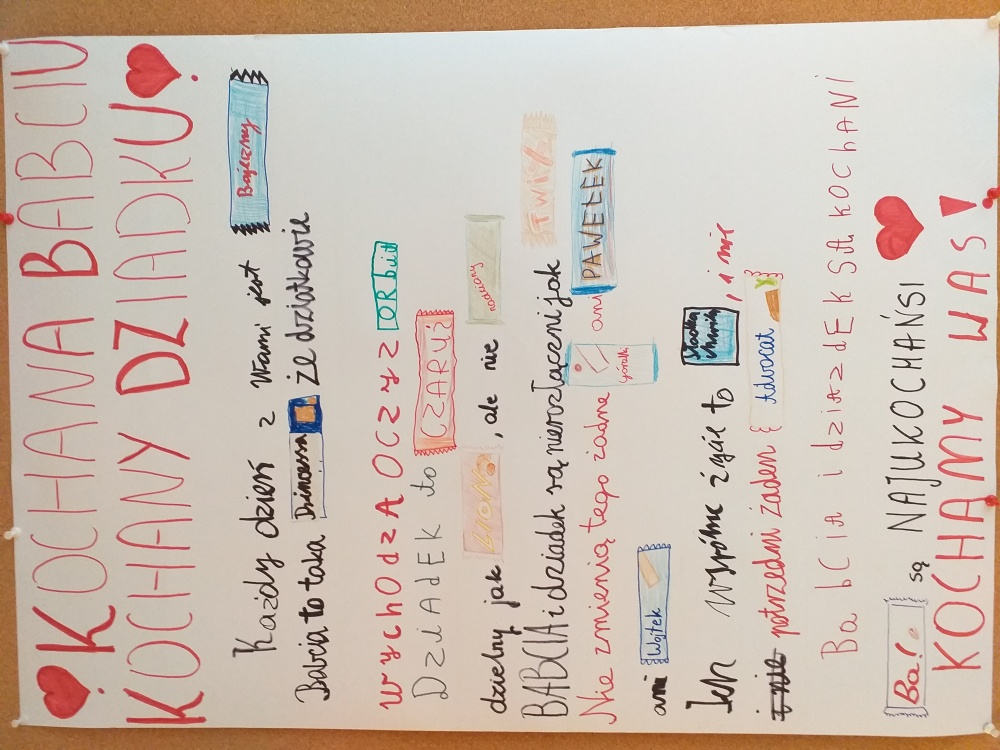 KOCHANA BABCIU
KOCHANY DZIADKU
Każdy dzień z Wami jest Bajeczny
Babcia to taka Princessa że dziadkowie
wychOdzA OCzyz ORbit
DZiAdEK to CZARUŚ
dzielny jak LION, ale nie nadziany
BABCIA i dziadek są nierozłączeni jak TWIX
Nie zmienią tego żadne Góralki ani PAWEŁEK
ani Wojtek
Ich wspólne życie to Słodkie chwile, i nie
i nie potrzebni żaden Advocat
Ba bCiA i dziAdEK SĄ KOChANi
Ba! są NAJUKOCHAŃSI
KOCHAMY WAS!